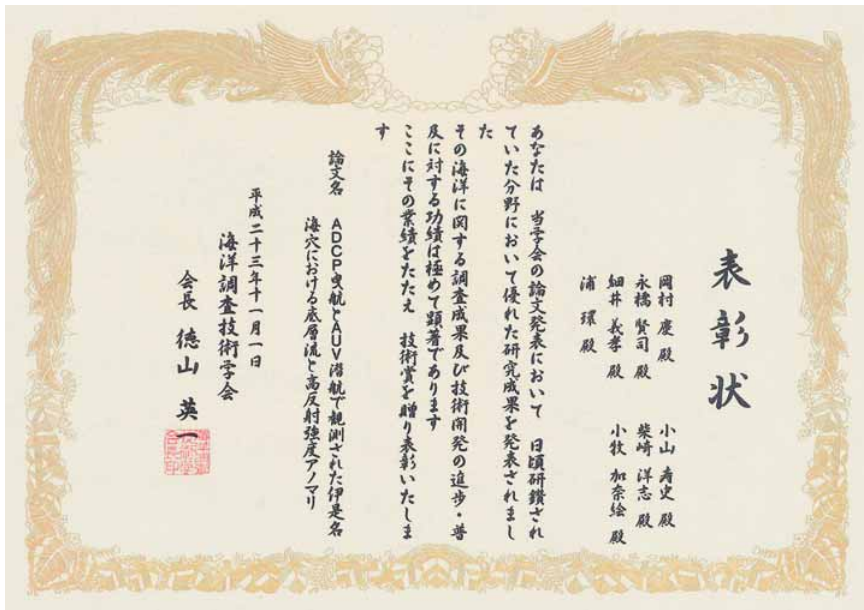 表彰状
岡村 慶 殿
小山 寿史 殿
永橋 賢司 殿
柴崎 洋志 殿
細井 義孝 殿
小牧 加奈絵 殿
浦 環 殿
あなたは 当学会の論文発表において 日頃研鑽され
ていた分野において優れた研究成果を発表されまし
た
その海洋に関する調査成果及び技術開発の進歩・普
及に対する功績は極めて顕著であります
ここにその業績をたたえ 技術賞を贈り表彰いたしま
す
論文名 ADCP曳航とAUV潜航で観測された伊是名
海穴における底層流と高反射強度アノマリ
平成二十三年十一月一日
海洋調査技術学会
会長 徳山 英一